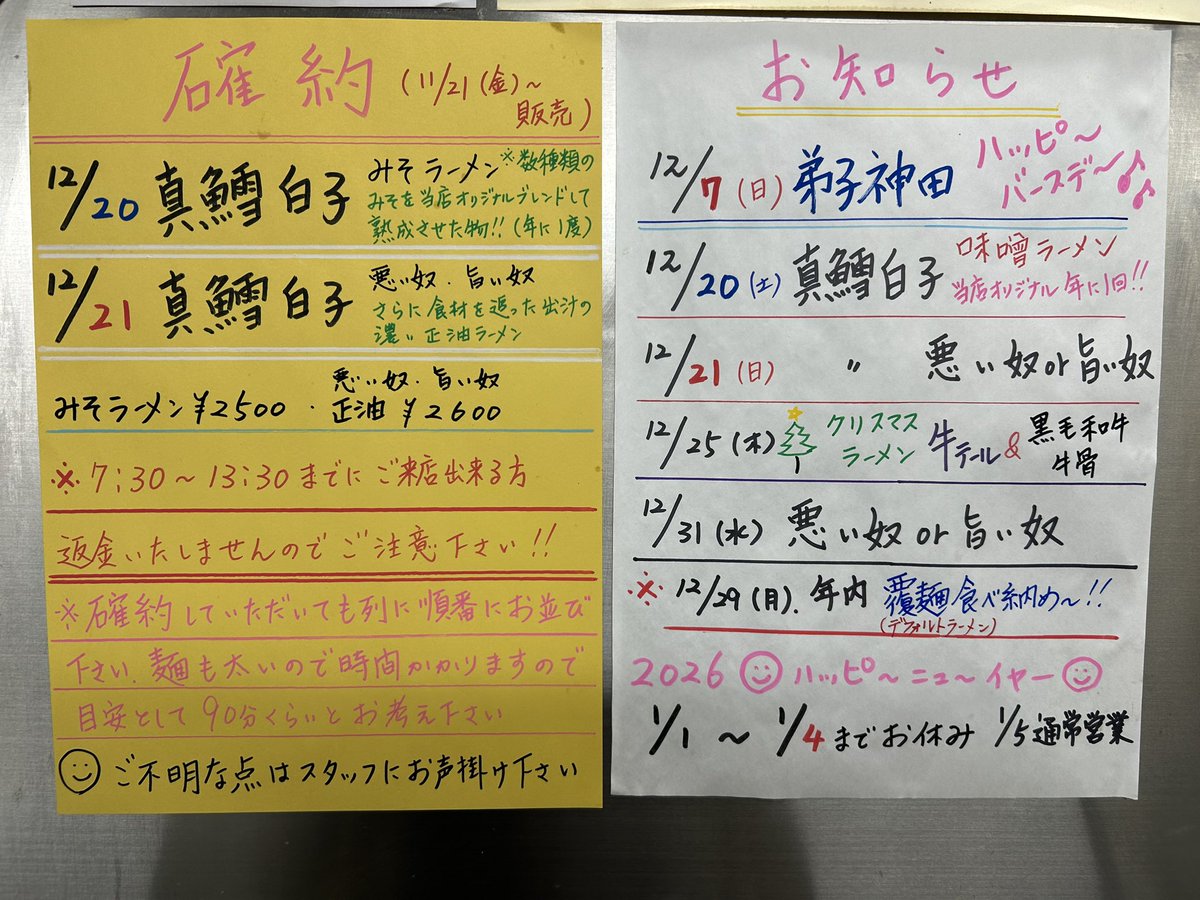 確約 (11/21(金)～
販売)
12/20 真鱈 白子 みそラーメン ※数種類の
みそを当店オリジナルブレンドして
熟成させた物!! (年に1度)
12/21 真鱈 白子 悪い奴．旨い奴
さらに食材を追った出汁の
濃い正油ラーメン
みそラーメン¥2500 ． 悪い奴．旨い奴
正油 ¥2600
※ 7:30～13:30までにご来店出来る方
返金いたしませんのでご注意下さい!!
※確約していただいても列に順番にお並び
下さい．麺も太いので時間かかりますので
目安として90分くらいとお考え下さい
ご不明な点はスタッフにお声掛け下さい
お知らせ
12/7(日) 弟子神田 ハッピ～
バースデ～♪♪
12/20(土) 真鱈白子 味噌ラーメン
当店オリジナル年に1回!!
12/21(日) 〃 悪い奴or旨い奴
12/25(木) クリスマス
ラーメン 牛テール& 黒毛和牛
牛骨
12/31(水) 悪い奴or旨い奴
※ 12/29(月)．年内 覆麺食べ納め～!!
(デフォルトラーメン)
2026 ハッピ～ニュ～イヤー
1/1 ～ 1/4までお休み 1/5通常営業